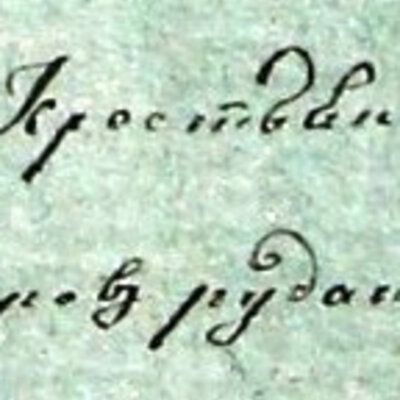 Крестьян
ровъ рудан